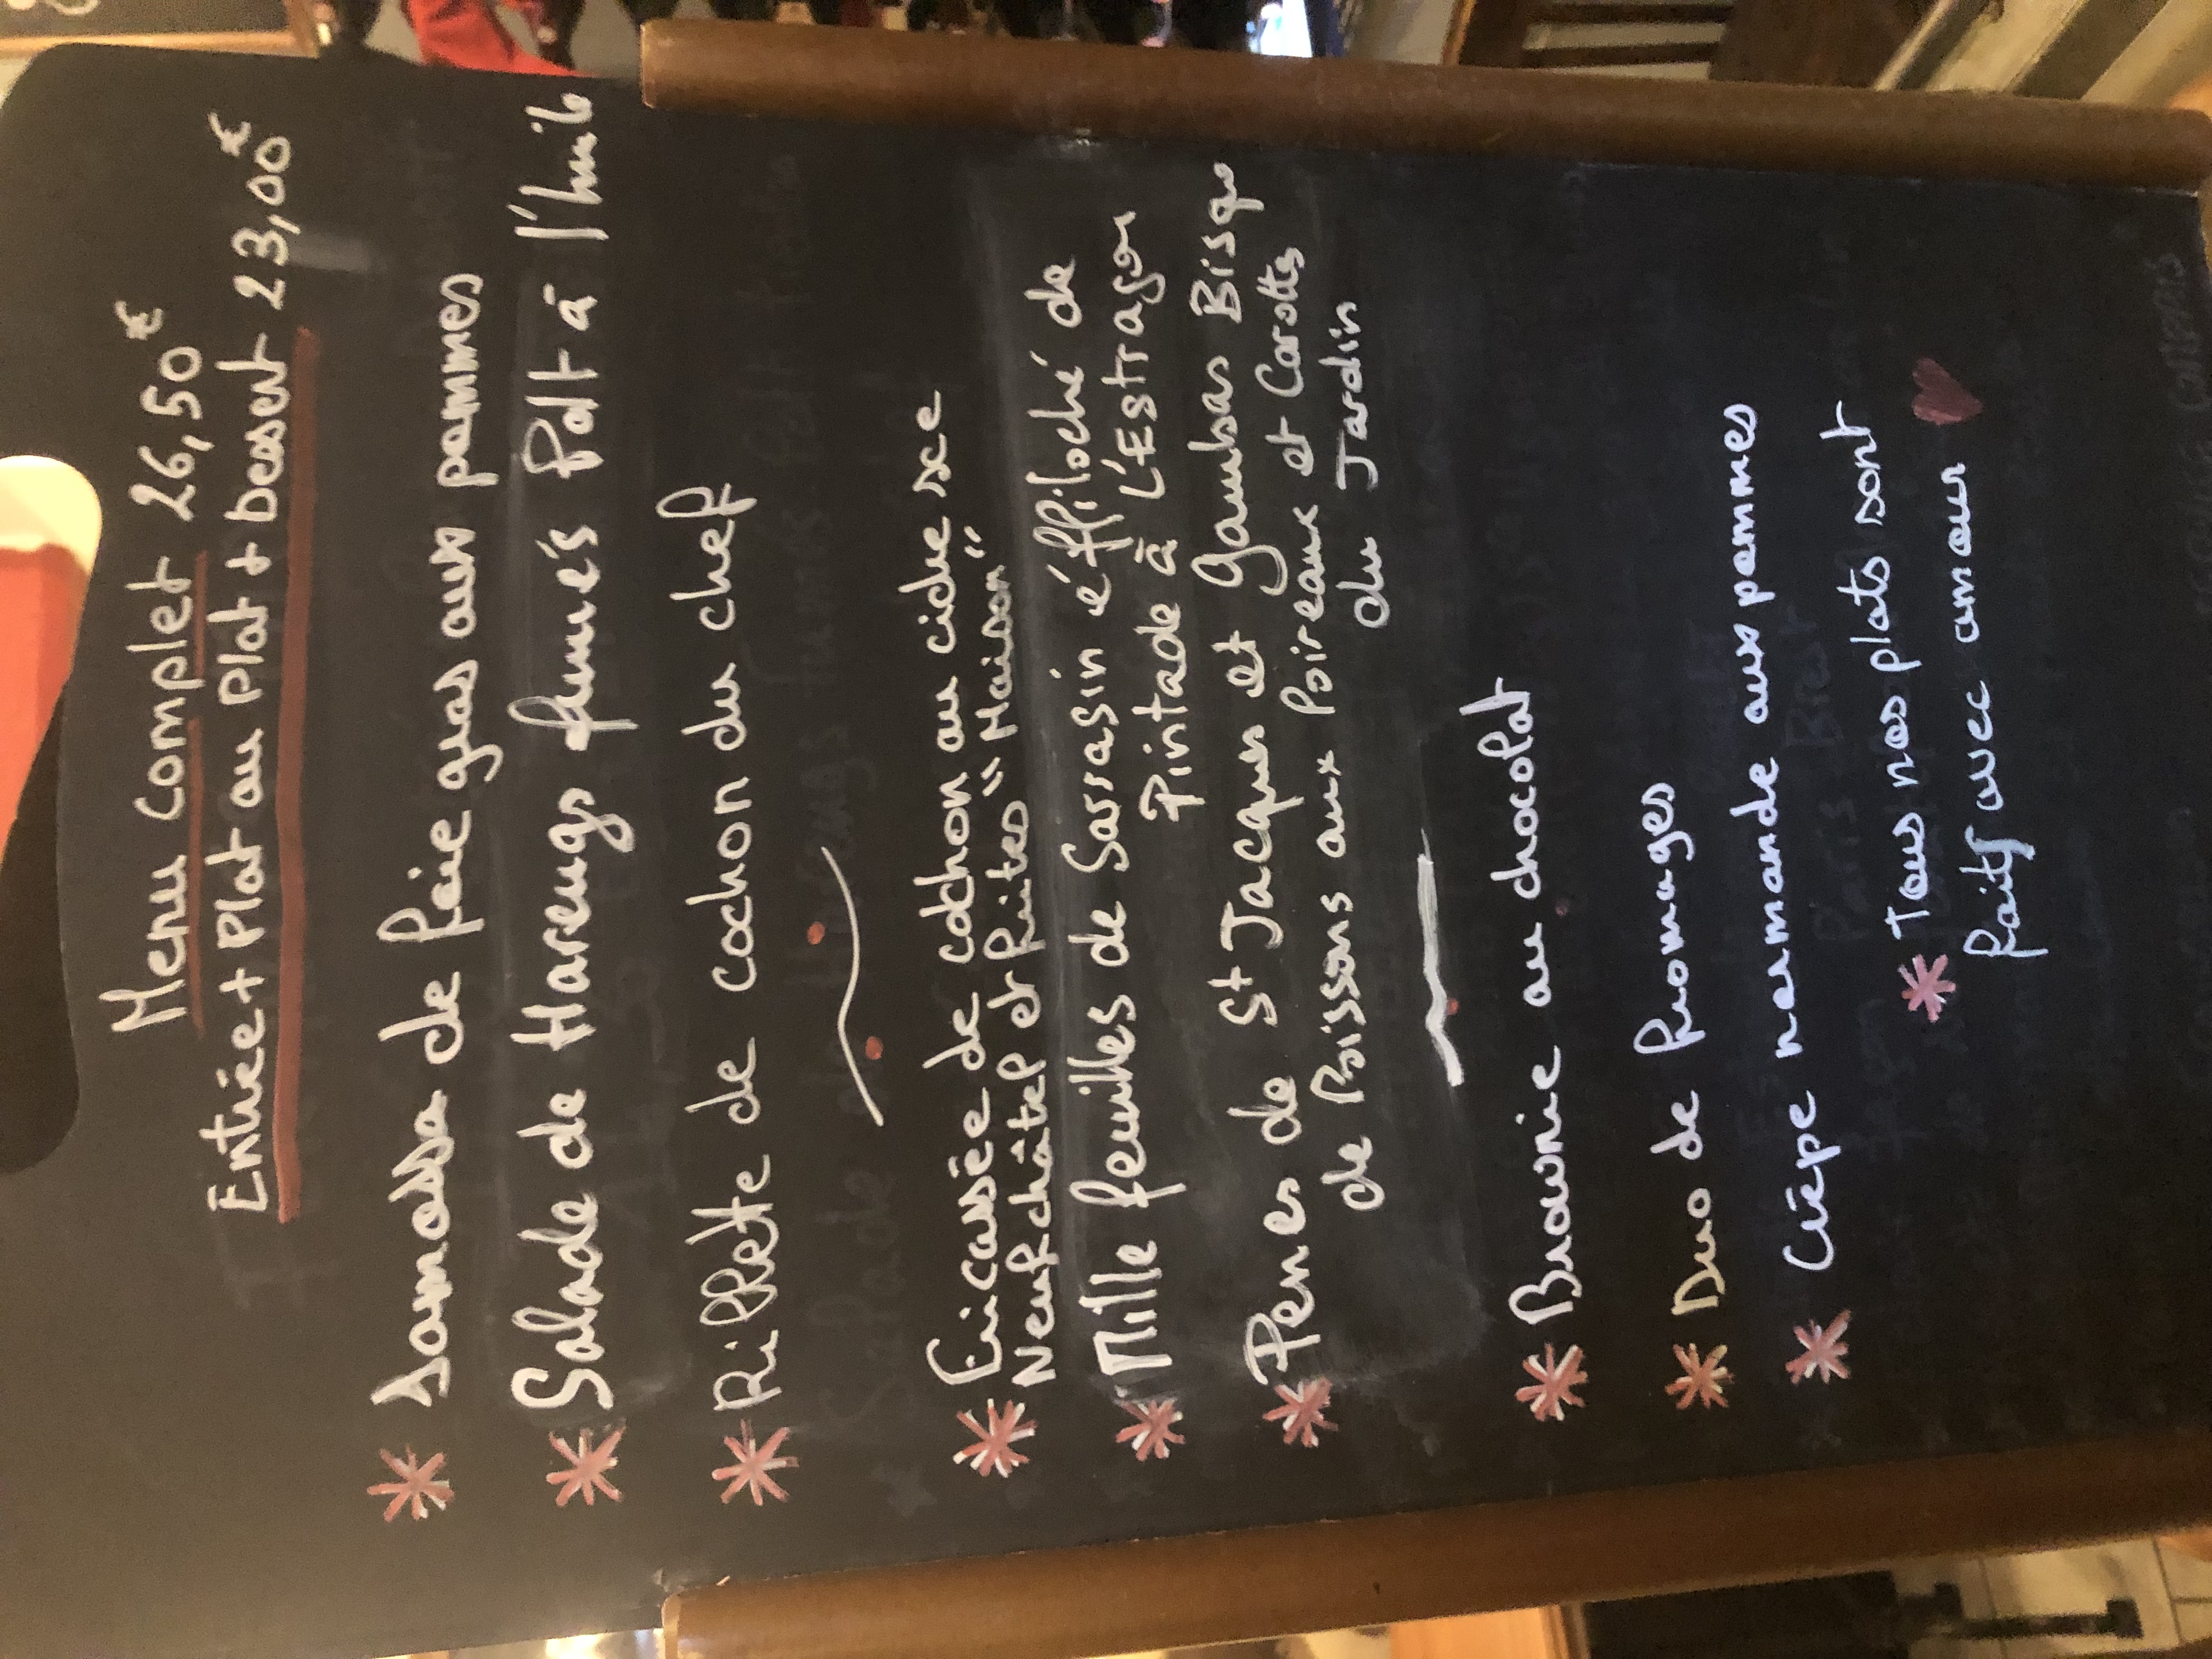 Menu complet 26,50€
Entrée + Plat ou Plat + Dessert 23,00€
* Samossa de foie gras aux pommes
* Salade de Harengs fumés Pdt à l'huile
* Rillette de cochon du chef
* Fricassée de cochon au cidre sce
Neufchâtel et frites "Maison"
* Mille feuilles de Sarrasin éffiloché de
Pintade à L'Estragon
* Penes de St Jacques et Gambas Bisque
de Poissons aux Poireaux et Carottes
du Jardin
* Brownie au chocolat
* Duo de fromages
* Crêpe normande aux pommes
* Tous nos plats sont
faits avec amour